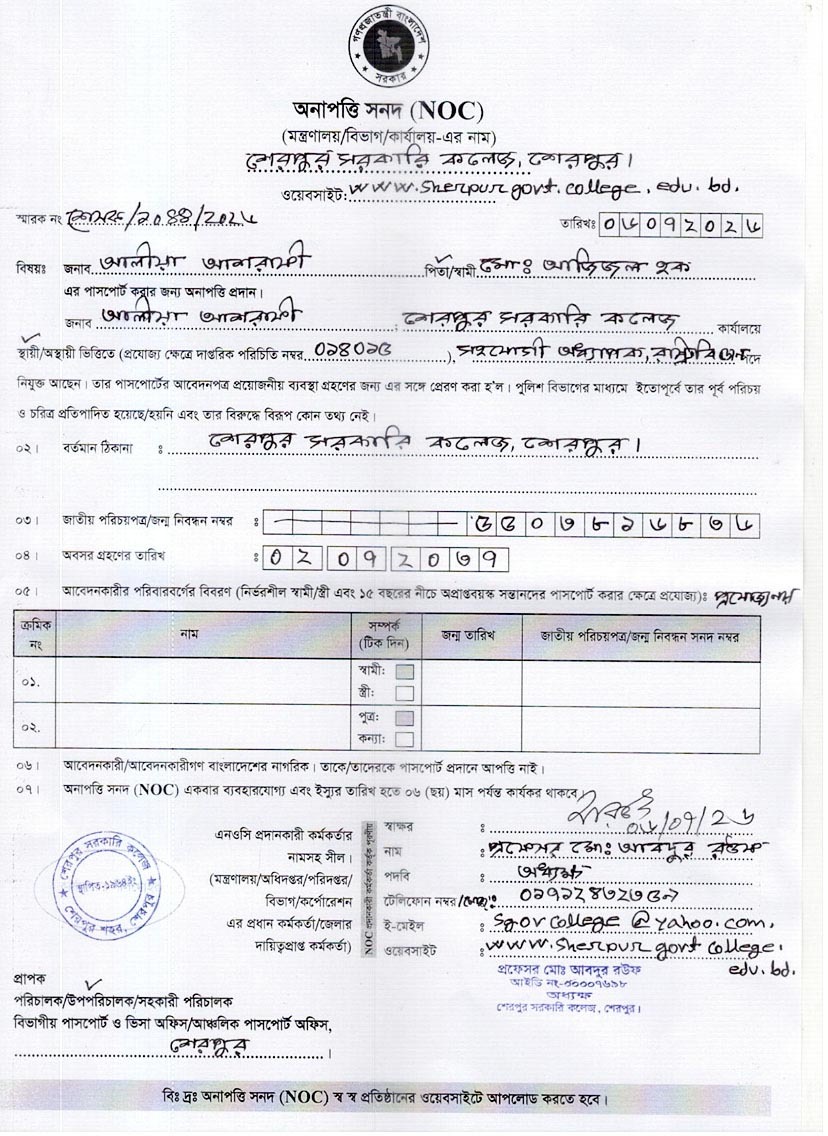 গণপ্রজাতন্ত্রী বাংলাদেশ
সরকার
অনাপত্তি সনদ (NOC)
(মন্ত্রণালয়/বিভাগ/কার্যালয়-এর নাম)
শেরপুর সরকারি কলেজ, শেরপুর।
ওয়েবসাইট: www.sherpur govt.college.edu.bd.
স্মারক নং
তারিখঃ ০৬০৭২০২৬
বিষয়ঃ জনাব আলীয়া আশরাফী পিতা/স্বামী মোঃ আজিজুল হক
এর পাসপোর্ট করার জন্য অনাপত্তি প্রদান।
জনাব আলীয়া আশরাফী ; শেরপুর সরকারি কলেজ কার্যালয়ে
স্থায়ী/অস্থায়ী ভিত্তিতে (প্রযোজ্য ক্ষেত্রে দাপ্তরিক পরিচিতি নম্বর ), সহযোগী অধ্যাপক, পদে
নিযুক্ত আছেন। তার পাসপোর্টের আবেদনপত্র প্রয়োজনীয় ব্যবস্থা গ্রহণের জন্য এর সঙ্গে প্রেরণ করা হ'ল। পুলিশ বিভাগের মাধ্যমে ইতোপূর্বে তার পূর্ব পরিচয়
ও চরিত্র প্রতিপাদিত হয়েছে/হয়নি এবং তার বিরুদ্ধে বিরূপ কোন তথ্য নেই।
০২। বর্তমান ঠিকানা : শেরপুর সরকারি কলেজ, শেরপুর।
০৩। জাতীয় পরিচয়পত্র/জন্ম নিবন্ধন নম্বর :
০৪। অবসর গ্রহণের তারিখ :
০৫। আবেদনকারীর পরিবারবর্গের বিবরণ (নির্ভরশীল স্বামী/স্ত্রী এবং ১৫ বছরের নীচে অপ্রাপ্তবয়স্ক সন্তানদের পাসপোর্ট করার ক্ষেত্রে প্রযোজ্য): প্রযোজ্য নয়
ক্রমিক নং নাম সম্পর্ক (টিক দিন) জন্ম তারিখ জাতীয় পরিচয়পত্র/জন্ম নিবন্ধন সনদ নম্বর
০১. স্বামী:
স্ত্রী:
০২. পুত্র:
কন্যা:
০৬। আবেদনকারী/আবেদনকারীগণ বাংলাদেশের নাগরিক। তাকে/তাদেরকে পাসপোর্ট প্রদানে আপত্তি নাই।
০৭। অনাপত্তি সনদ (NOC) একবার ব্যবহারযোগ্য এবং ইস্যুর তারিখ হতে ০৬ (ছয়) মাস পর্যন্ত কার্যকর থাকবে।
০৬/০৭/২৬
এনওসি প্রদানকারী কর্মকর্তার
নামসহ সীল।
(মন্ত্রণালয়/অধিদপ্তর/পরিদপ্তর/
বিভাগ/কর্পোরেশন
এর প্রধান কর্মকর্তা/জেলার
দায়িত্বপ্রাপ্ত কর্মকর্তা)
NOC প্রদানকারী কর্মকর্তা কর্তৃক পূরণীয়
স্বাক্ষর :
নাম : প্রফেসর মোঃ আবদুর রউফ
পদবি : অধ্যক্ষ
টেলিফোন নম্বর/
ই-মেইল : sgovcollege@yahoo.com.
ওয়েবসাইট : www.sherpur govt college.
edu.bd.
শেরপুর সরকারি কলেজ
স্থাপিত-১৯৬৪ইং
শেরপুর শহর, শেরপুর
প্রফেসর মোঃ আবদুর রউফ
আইডি নং-০০০০৭৬৯৮
অধ্যক্ষ
শেরপুর সরকারি কলেজ, শেরপুর।
প্রাপক
পরিচালক/উপপরিচালক/সহকারী পরিচালক
বিভাগীয় পাসপোর্ট ও ভিসা অফিস/আঞ্চলিক পাসপোর্ট অফিস,
শেরপুর।
বিঃ দ্রঃ অনাপত্তি সনদ (NOC) স্ব স্ব প্রতিষ্ঠানের ওয়েবসাইটে আপলোড করতে হবে।